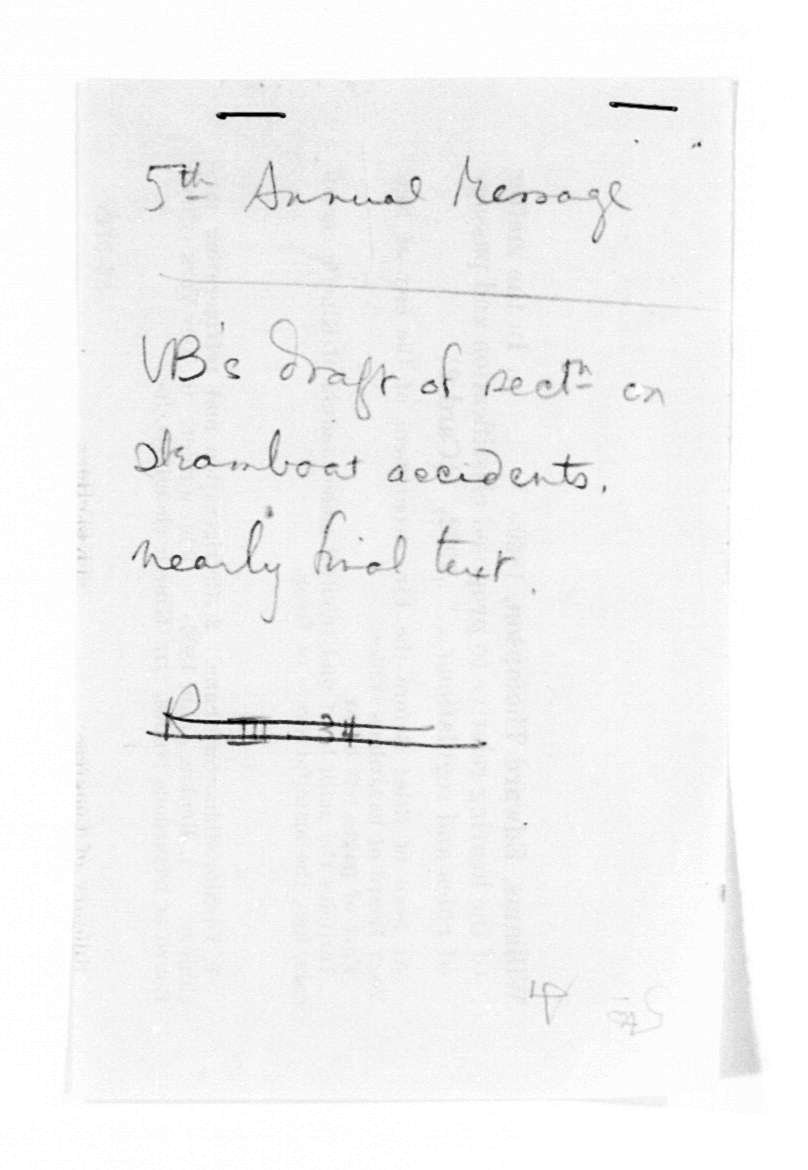 5th Annual Message
VB's draft of sectn on
steamboat accidents.
nearly final text.
R III. 34
4